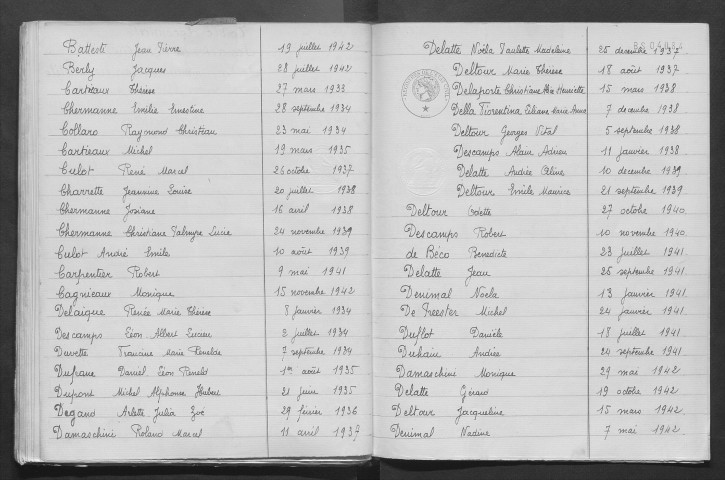 Battesti Jean Pierre 19 juillet 1942
Berly Jacques 28 juillet 1942
Carteaux Thérèse 27 mars 1933
Chermanne Emilie Ernestine 28 septembre 1934
Collard Raymond Christian 23 mai 1934
Cartiaux Michel 19 mars 1935
Culot René Marcel 26 octobre 1937
Charrette Jeannine Louise 20 juillet 1938
Chermanne Josiane 16 avril 1938
Chermanne Christiane Palmyre Lucie 24 novembre 1939
Culot André Emile 10 août 1939
Carpentier Robert 9 mai 1941
Cagnieaux Monique 15 novembre 1942
Delaique Renée Marie Thérèse 8 janvier 1934
Descamps Léon Albert Lucien 2 juillet 1934
Duvette Francine Marie 7 septembre 1934
Dufrane Daniel Léon 1er août 1935
Dupont Michel Alphonse Hubert 21 juin 1935
Degand Arlette Julia Zoé 29 février 1936
Damaschini Roland Marcel 11 avril 1937
Delatte Noëla Paulette Madeleine 25 decembre 1937
Deltour Marie Thérèse 18 août 1937
Delaporte Christiane Henriette 15 mars 1938
Della Fiorentina Liliane Marie Anna 7 decembre 1938
Deltour Georges Vital 5 septembre 1938
Descamps Alain Adrien 11 janvier 1938
Delatte Andrée Céline 10 decembre 1939
Deltour Emile Maurice 21 septembre 1939
Deltour Odette 27 octobre 1940
Descamps Robert 10 novembre 1940
de Béco Benedicte 23 juillet 1941
Delatte Jean 25 septembre 1941
Denimal Noëla 13 janvier 1941
Michel 24 janvier 1941
Duflot Danièle 18 juillet 1941
Duhain Andrée 24 septembre 1941
Damaschini Monique 29 mai 1942
Delatte Gérard 19 octobre 1942
Deltour Jacqueline 15 mars 1942
Denimal Nadine 7 mai 1942